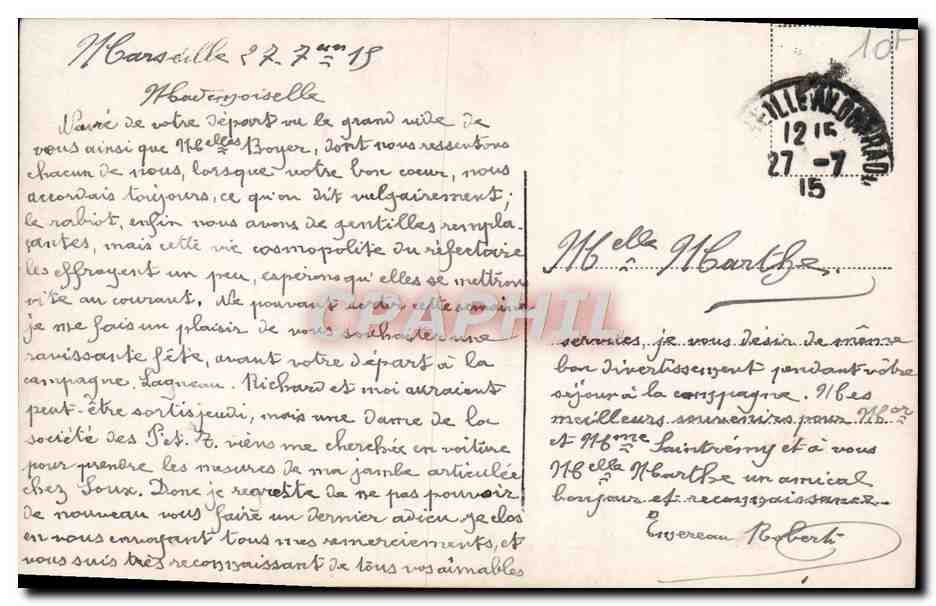 Marseille 27-7 15
10F
Mademoiselle
de votre départ vu le grand vide de
vous ainsi que Melles Boyer, dont nous ressentons
chacun de nous, lorsque votre bon cœur, nous
accordais toujours, ce qu'on dit vulgairement;
le rabiot, enfin nous avons de gentilles rempla-
çantes, mais cette vie cosmopolite du réfectaire
les effrayent un peu, espérons qu'elles se mettron
vite au courant. Ne pouvant cette semaine
je me fais un plaisir de vous souhaiter une
ravissante fête, avant votre départ à la
campagne. Lagneau. Richard et moi auraient
peut-être sortis jeudi, mais une dame de la
société des P et. T. viens me cherchée en voiture
pour prendre les mesures de ma jambe articulée
chez Donc je regrette de ne pas pouvoir
de nouveau vous faire un dernier adieu. je clos
en vous envoyant tous mes remerciements, et
vous suis très reconnaissant de tous vos aimables
12 15
27 -7
15
Melle Marthe
services, je vous désir de même
bon divertissement pendant vôtre
séjour à la campagne. Mes
meilleurs souvenires pour Mor
et Mme Saintrémy et à vous
Mella Marthe un amical
bonjour et reconnaissance
Robert
CPAPHIL